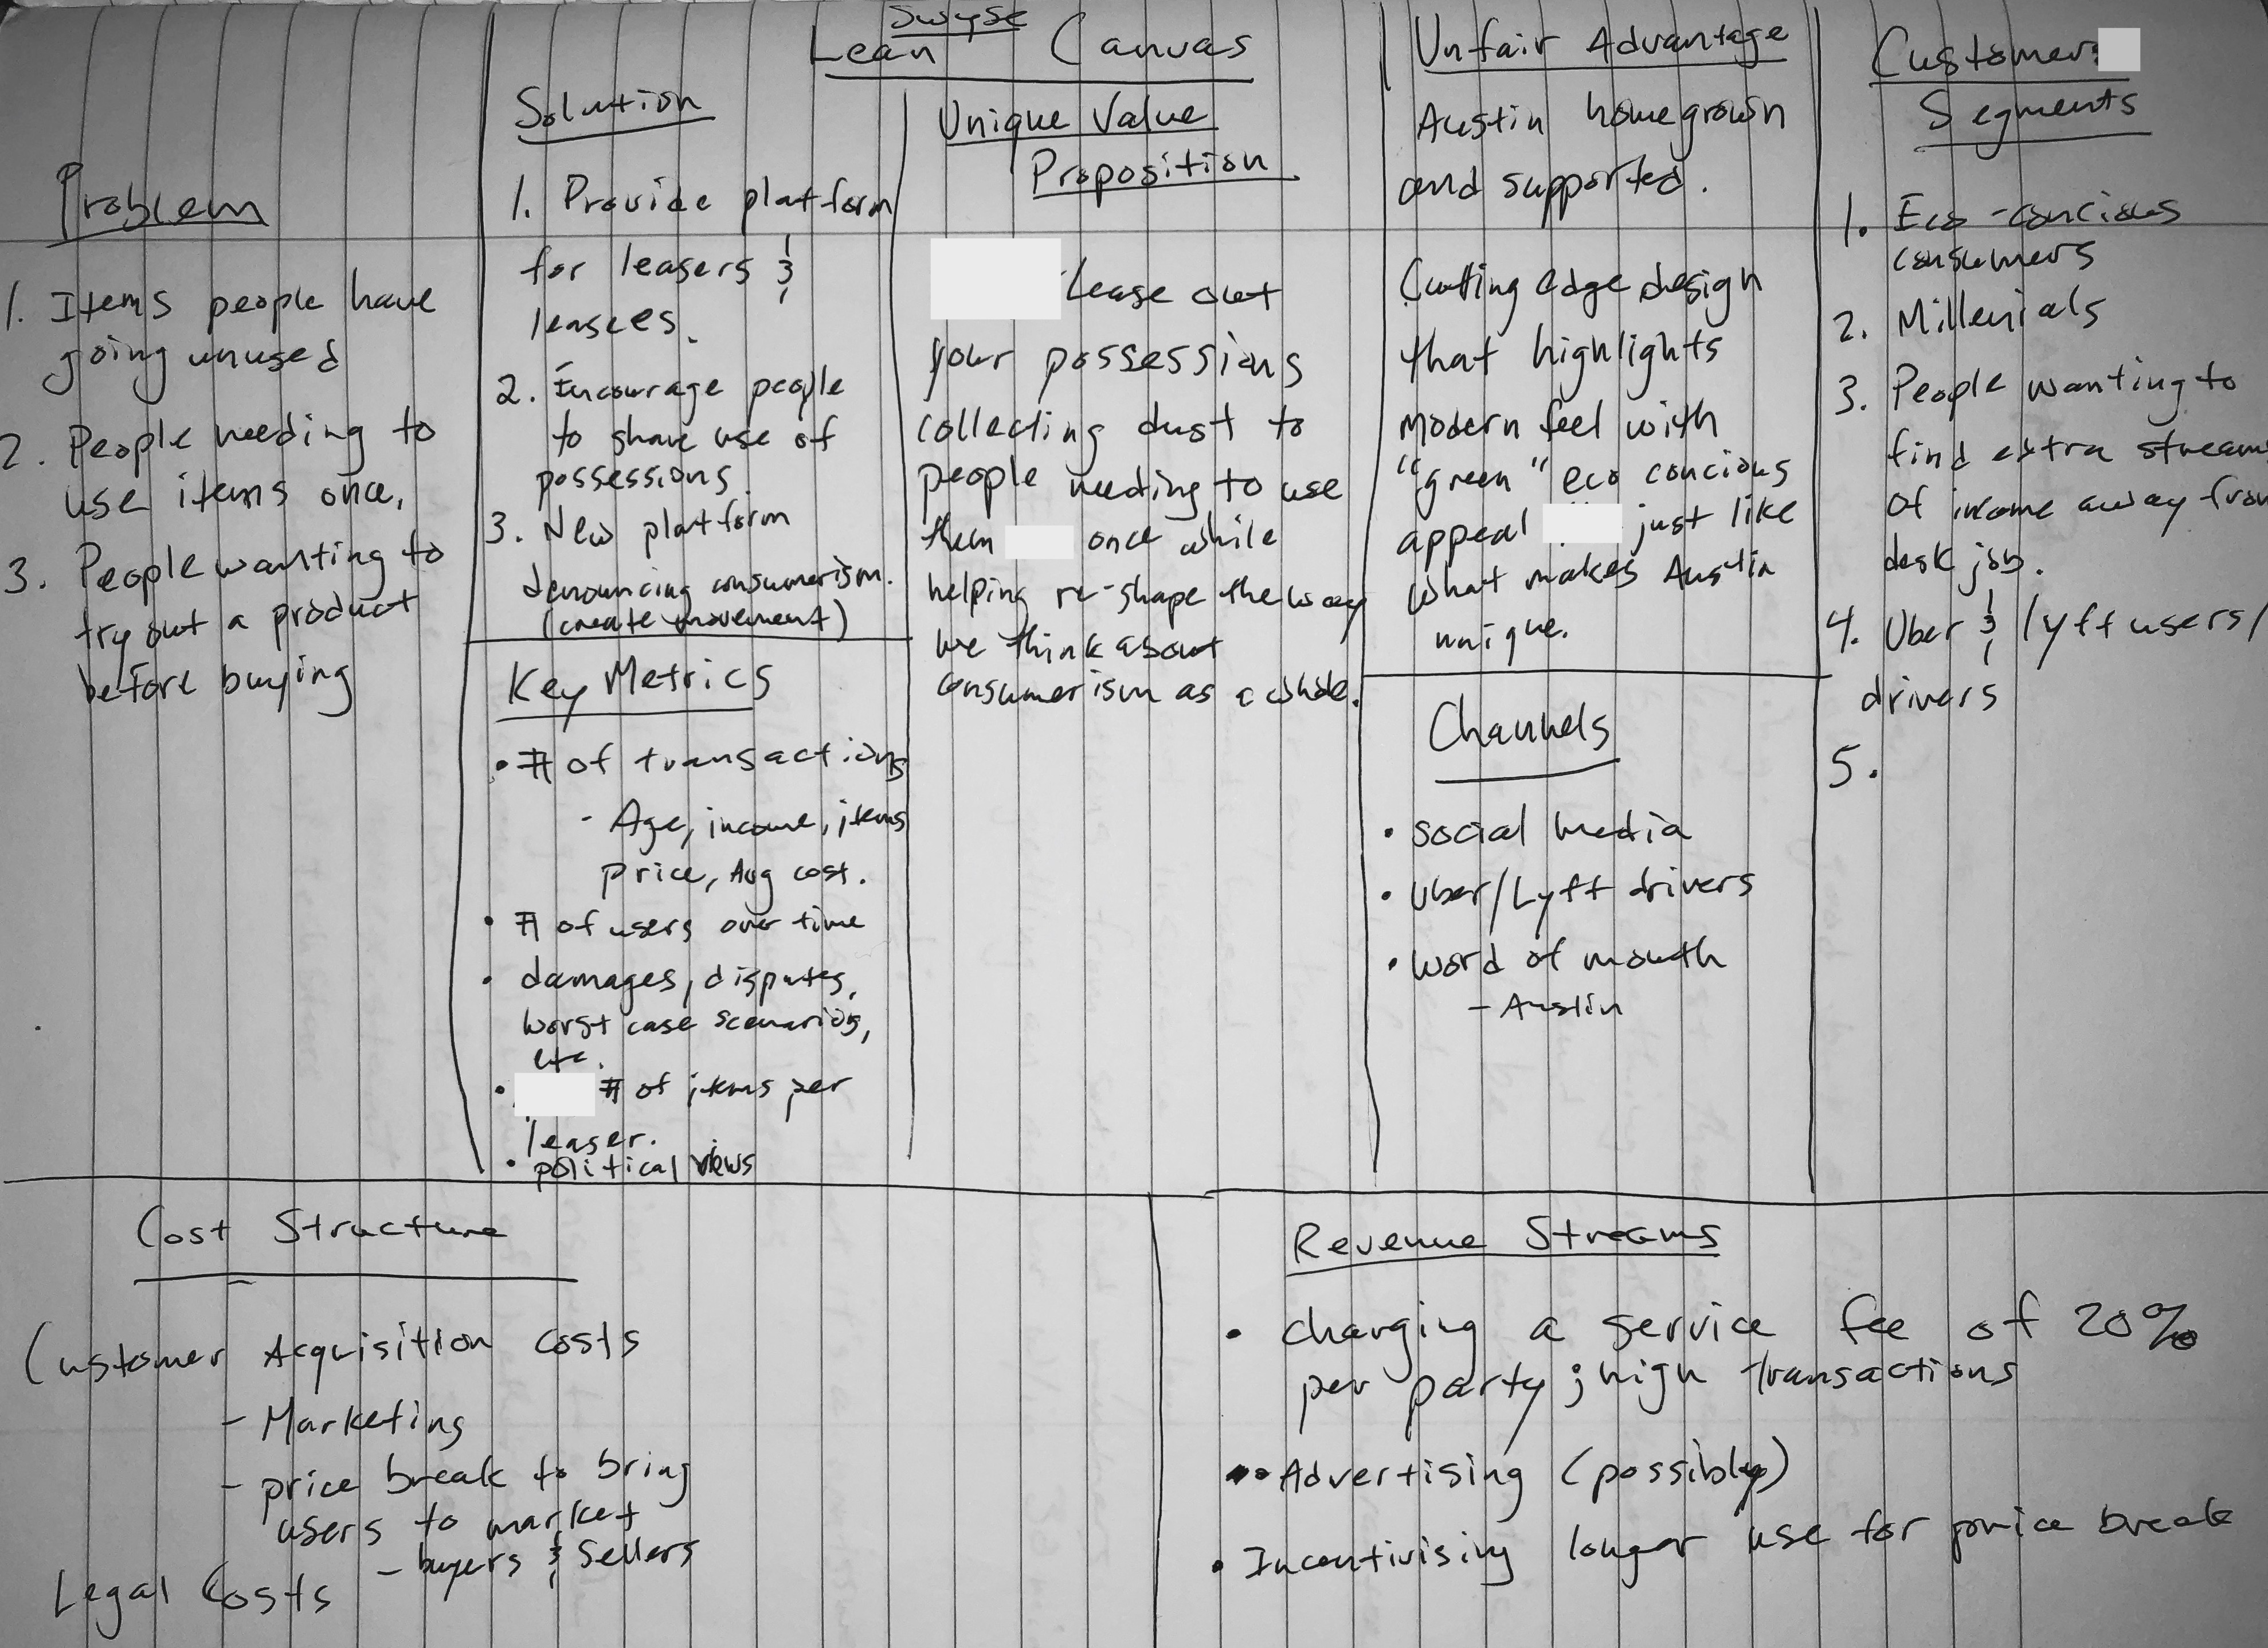 Swyse
Lean Canvas
Problem
1. Items people have
going unused
2. People needing to
use items once,
3. People wanting to
try out a product
before buying
Solution
1. Provide platform
for leasers &
leasees.
2. Encourage people
to share use of
possessions.
3. New platform
denouncing consumerism.
(create movement)
Key Metrics
• # of transactions
- Age, income, items
price, Avg cost.
• # of users over time
• damages, disputes,
worst case scenarios,
etc.
• # of items per
leaser.
• political views
Unique Value
Proposition
Lease out
your possessions
collecting dust to
people needing to use
them once while
helping re-shape the way
we think about
consumerism as a whole.
Unfair Advantage
Austin homegrown
and supported.
Cutting edge design
that highlights
modern feel with
"green" eco concious
appeal just like
what makes Austin
unique.
Channels
• social media
• Uber/Lyft drivers
• word of mouth
- Austin
Customer
Segments
1. Eco-concious
consumers
2. Millenials
3. People wanting to
find extra streams
of income away from
desk job.
4. Uber & lyft users/
drivers
5.
Cost Structure
Customer Acquisition costs
- Marketing
- price break to bring
users to market
- buyers & Sellers
Legal Costs
Revenue Streams
• charging a service fee of 20%
per party; high transactions
• Advertising (possibly)
• Incentivising longer use for price break